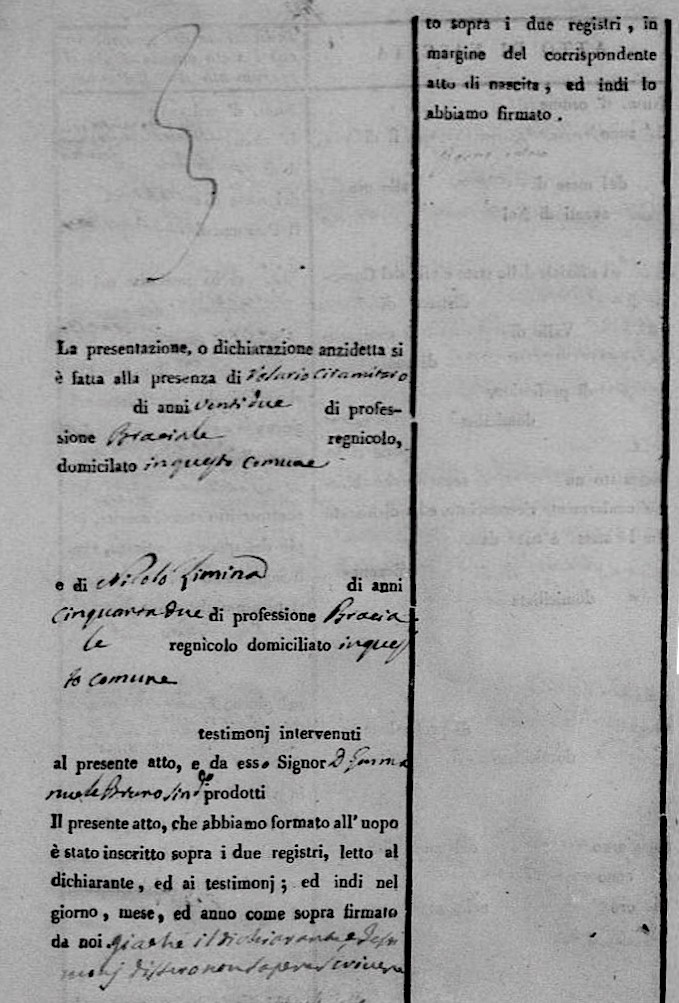 La presentazione, o dichiarazione anzidetta si
è fatta alla presenza di
di anni venti due di profes-
sione Braciale regnicolo,
domicilato in questo comune
e di Nicolò Limina di anni
Cinquanta due di professione Bracia
le regnicolo domiciliato in ques
to comune
testimonj intervenuti
al presente atto, e da esso Signor D.
Bruno prodotti
Il presente atto, che abbiamo formato all'uopo
è stato inscritto sopra i due registri, letto al
dichiarante, ed ai testimonj; ed indi nel
giorno, mese, ed anno come sopra firmato
da noi giache il dichiarante e testi
monj dissero non sapere scrivere
to sopra i due registri, in
margine del corrispondente
atto di nascita, ed indi lo
abbiamo firmato.